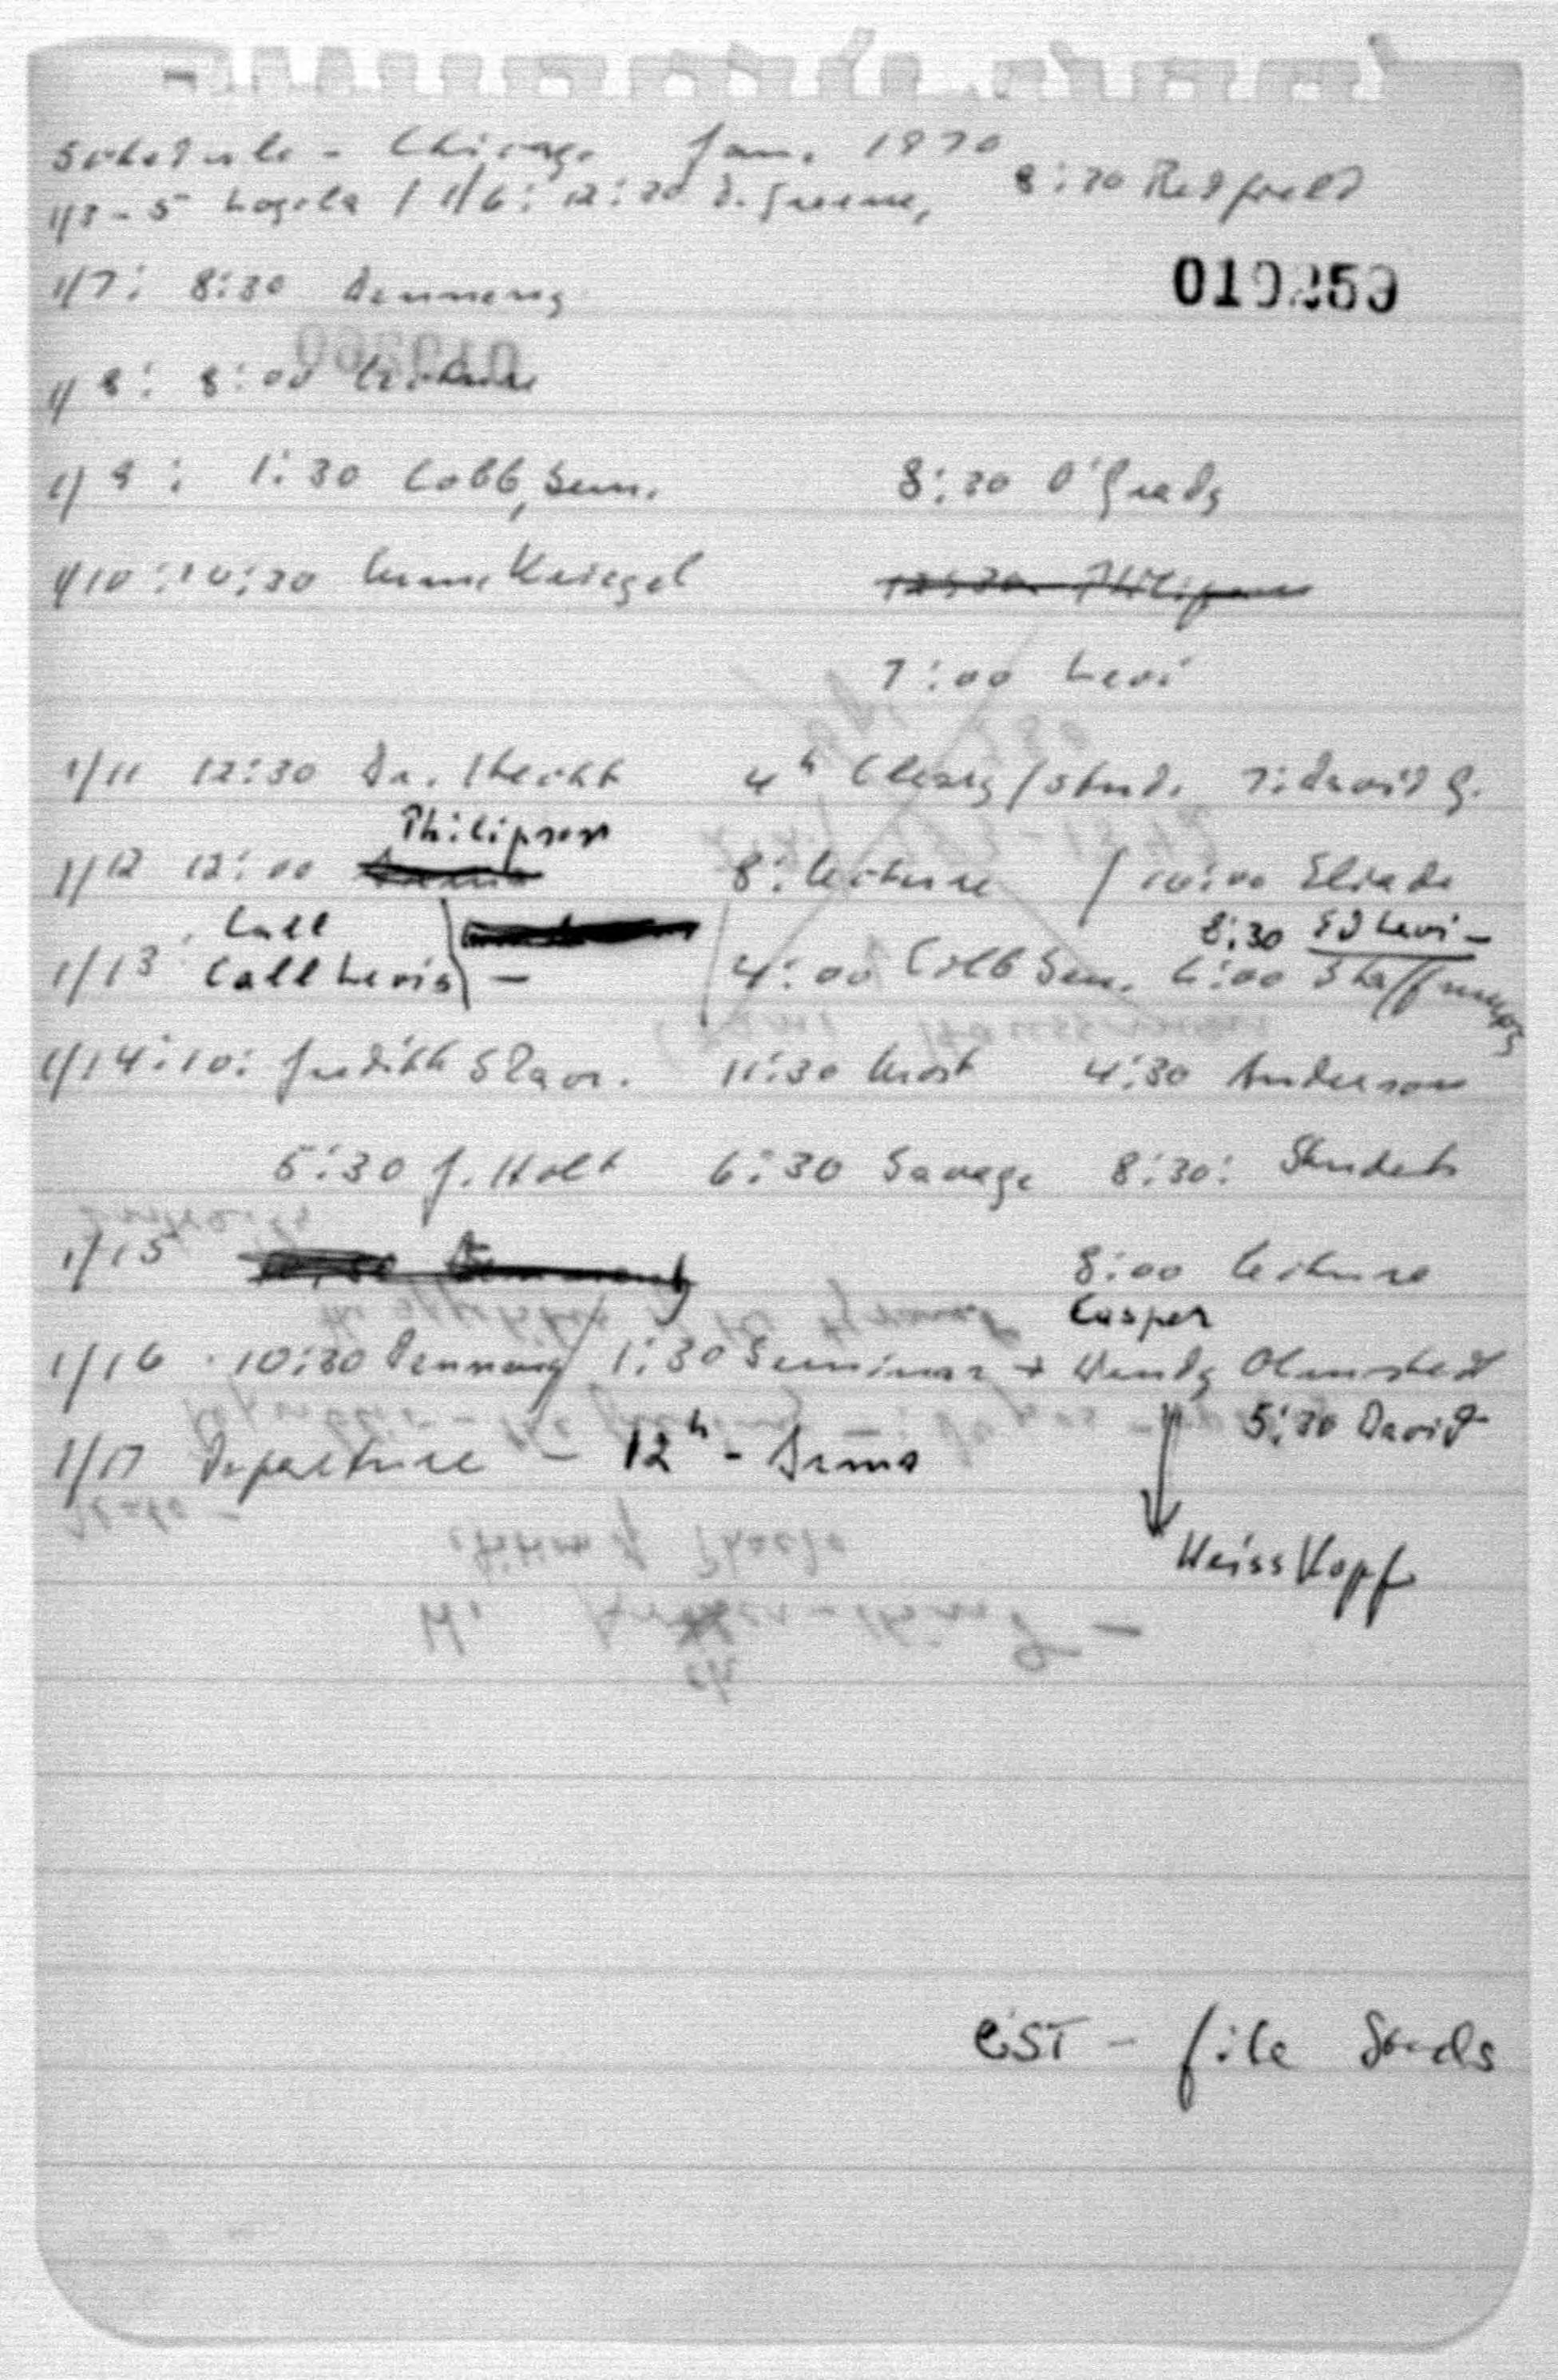 Schedule - Chicago Jan. 1970
1/3-5 Loyola / 1/6: 12:30 D. Greene, 8:30 Redfield
1/7: 8:30 Denneny
1/8: 8:00 Lecture
1/9: 1:30 Cobb, Sem. 8:30 O'Grady
1/10: 10:30 Kriegel 12:30 Philipson
7:00 Levi
1/11 12:30 Dr. 4h Clergy / Stud. 7: David G.
Philipson
1/12 12:00 8: Lecture / 10:00 Eliade
Call 8:30 Ed Levi -
1/13 Call Levis - 4:00 Cobb Sem. 6:00
1/14: 10: Judith 11:30 4:30 Anderson
5:30 J. Holt 6:30 Savage 8:30: Students
1/15 8:00 Lecture
Casper
1/16 10:30 Denneny / 1:30 Seminar + Wendy Olmsted
5:30 David
1/17 Departure - 12h -
Weisskopf
- file